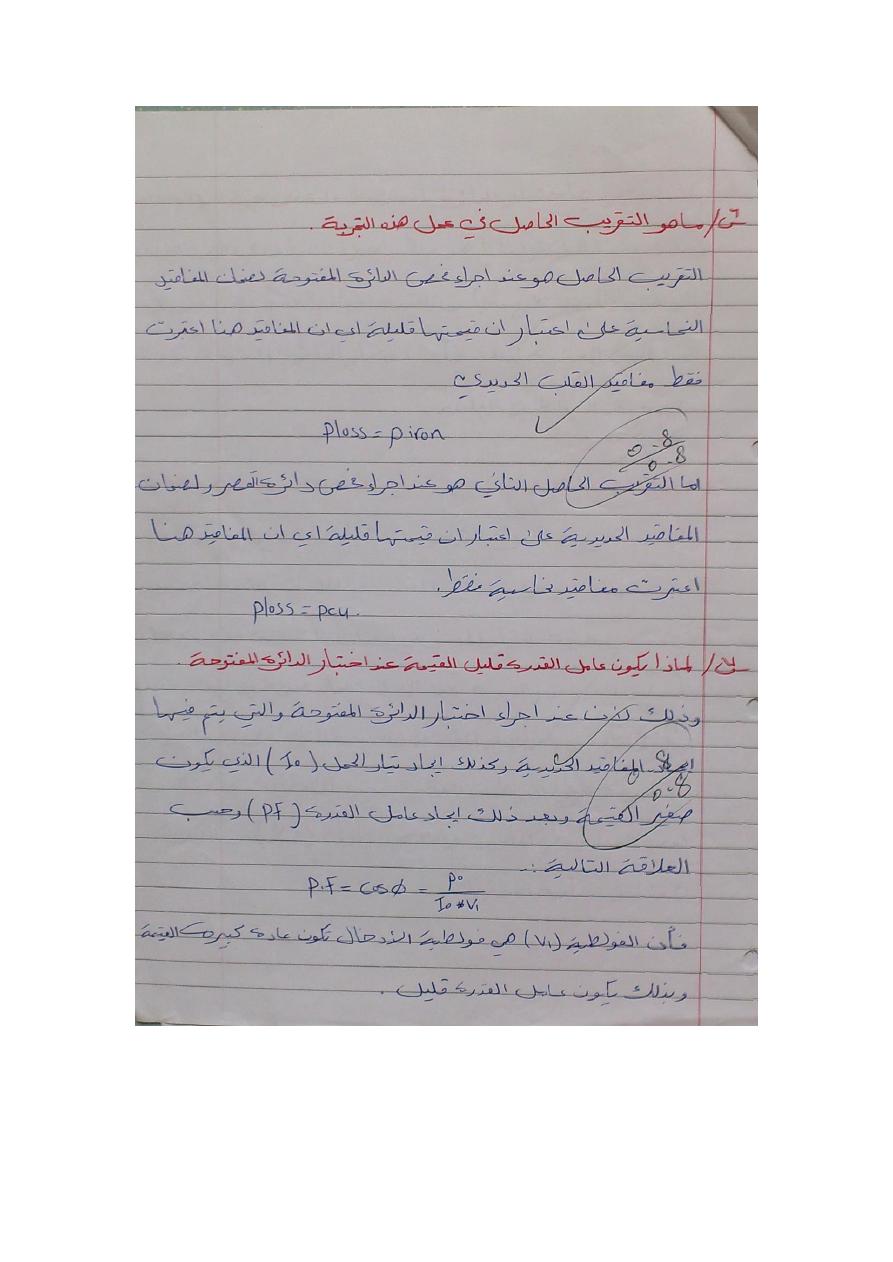 س٦/ ماهو التقريب الحاصل في عمل هذه التجربة .
التقريب الحاصل هو عند اجراء فحص الدائرة المفتوحة لضمان المفاقيد
النحاسية على اعتبار ان قيمتها قليلة اي ان المفاقيد هنا اعتبرت
فقط مفاقيد القلب الحديدي
ploss = piron
0.8
0.8
اما التقريب الحاصل الثاني هو عند اجراء فحص دائرة القصر ولضمان
المفاقيد الحديدية على اعتبار ان قيمتها قليلة اي ان المفاقيد هنا
اعتبرت مفاقيد نحاسية فقط.
ploss = pcu.
س٧/ لماذا يكون عامل القدرة قليل القيمة عند اختبار الدائرة المفتوحة .
وذلك لان عند اجراء اختبار الدائرة المفتوحة والتي يتم فيها
ايجاد المفاقيد الحديدية وكذلك ايجاد تيار الحمل (Io) الذي يكون
0.8
صغير القيمة وبعد ذلك ايجاد عامل القدرة (PF) وحسب
العلاقة التالية :.
P.F = cos φ = P° / Io * V1
فأن الفولطية (V1) هي فولطية الادخال تكون عادة كبيرة القيمة
وبذلك يكون عامل القدرة قليل .